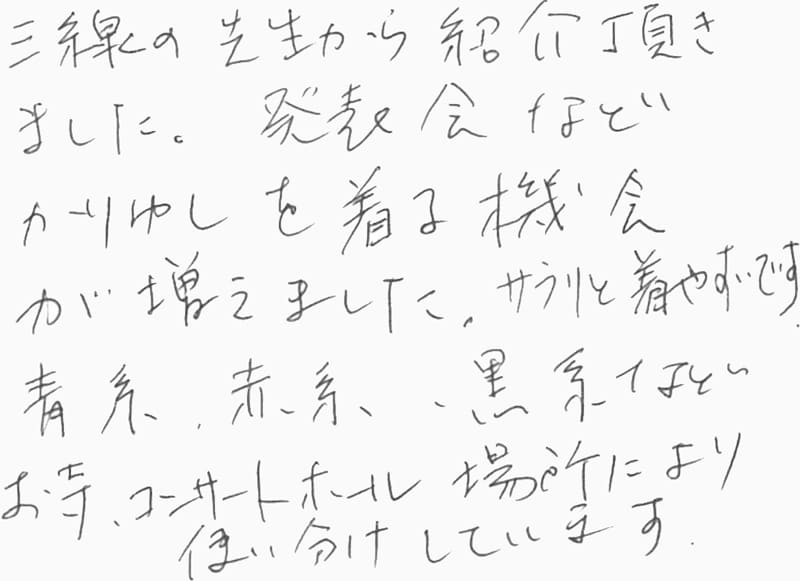 三線の先生から紹介頂き
ました。発表会など
かりゆしを着る機会
が増えました。サラリと着やすいです.
青系、赤系、黒系など
お寺、コンサートホール場所により
使い分けしています.